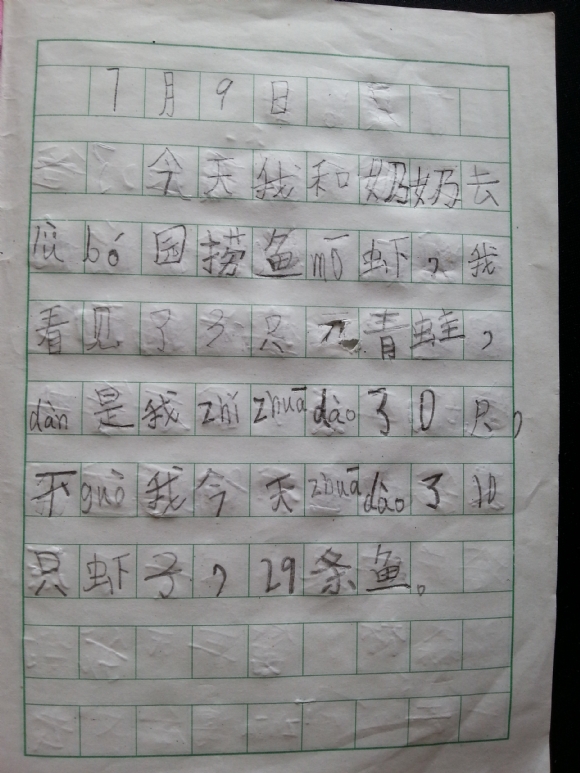 7月9日
今天我和奶奶去
bó园捞鱼mō虾，我
看见了3只 青蛙，
dàn是我zhǐ zhuā dào了0只，
不guò我今天zhuā dào了10
只虾子，29条鱼。